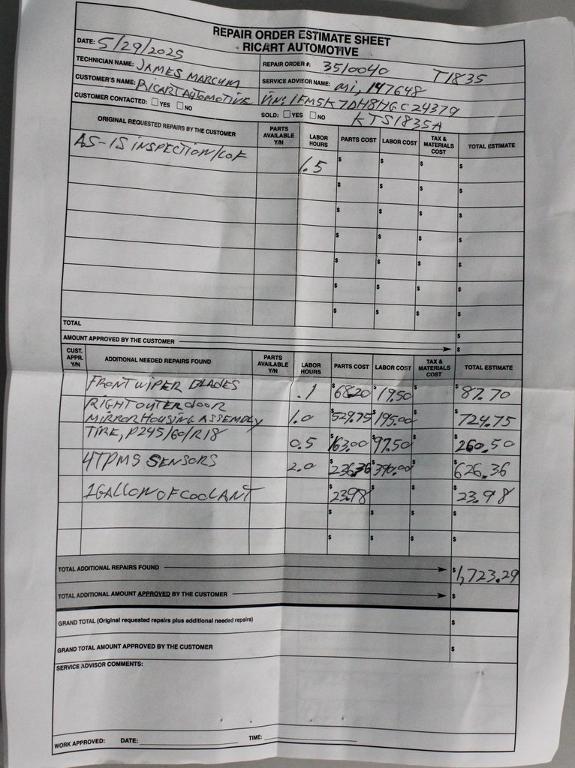 REPAIR ORDER ESTIMATE SHEET
RICART AUTOMOTIVE
DATE: 5/29/2025
REPAIR ORDER #: 3510040 T1835
TECHNICIAN NAME: JAMES MARCUM
SERVICE ADVISOR NAME: Mi, 147648
CUSTOMER'S NAME: RICART AUTOMOTIVE
VIN: 1FM5K7DH8HGC24379
CUSTOMER CONTACTED: YES NO
SOLD: YES NO KTS1835A
ORIGINAL REQUESTED REPAIRS BY THE CUSTOMER PARTS AVAILABLE Y/N LABOR HOURS PARTS COST LABOR COST TAX & MATERIALS COST TOTAL ESTIMATE
AS-IS INSPECTION/COF 1.5 $ $ $ $
$ $ $ $
$ $ $ $
$ $ $ $
$ $ $ $
$ $ $ $
$ $ $ $
TOTAL $
AMOUNT APPROVED BY THE CUSTOMER $
CUST. APPR. Y/N ADDITIONAL NEEDED REPAIRS FOUND PARTS AVAILABLE Y/N LABOR HOURS PARTS COST LABOR COST TAX & MATERIALS COST TOTAL ESTIMATE
FRONT WIPER BLADES .1 $68.20 $19.50 $ $87.70
RIGHT OUTER DOOR
MIRROR HOUSING ASSEMBLY 1.0 $529.75 $195.00 $ $724.75
TIRE, P245/60/R18 0.5 $163.00 $97.50 $ $260.50
4 TPMS SENSORS 2.0 $236.36 $390.00 $ $626.36
1 GALLON OF COOLANT $23.98 $ $ $23.98
$ $ $ $
$ $ $ $
TOTAL ADDITIONAL REPAIRS FOUND $1,723.29
TOTAL ADDITIONAL AMOUNT APPROVED BY THE CUSTOMER $
GRAND TOTAL (Original requested repairs plus additional needed repairs) $
GRAND TOTAL AMOUNT APPROVED BY THE CUSTOMER $
SERVICE ADVISOR COMMENTS:
WORK APPROVED: DATE: TIME: